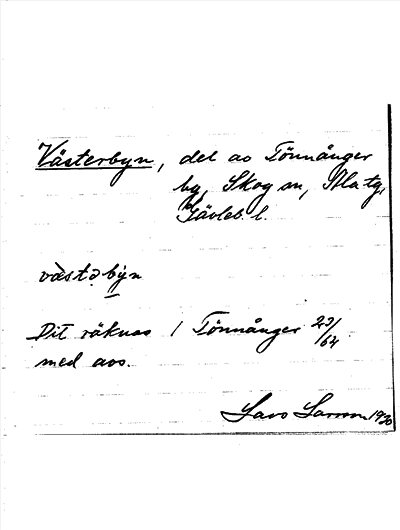 Västerbyn, del av Tönnånger
by, Skog sn, Ala tg,
Gävleb. l.
västəby̌n
Dit räknas 1 Tönnånger 23/64
med avs.
Lars Larsson 1930